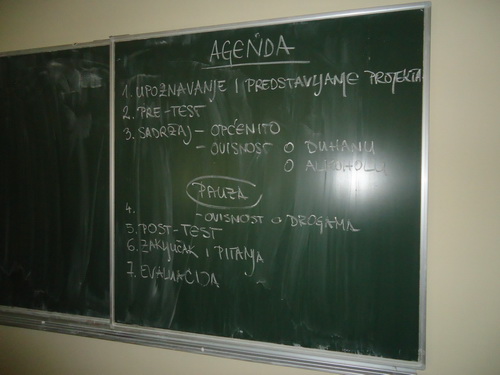 AGENDA
1. UPOZNAVANJE I PREDSTAVLJANJE PROJEKTA
2. PRE-TEST
3. SADRŽAJ - OPĆENITO
- OVISNOST O DUHANU
O ALKOHOLU
PAUZA
4. - OVISNOST O DROGAMA
5. POST-TEST
6. ZAKLJUČAK I PITANJA
7. EVALUACIJA